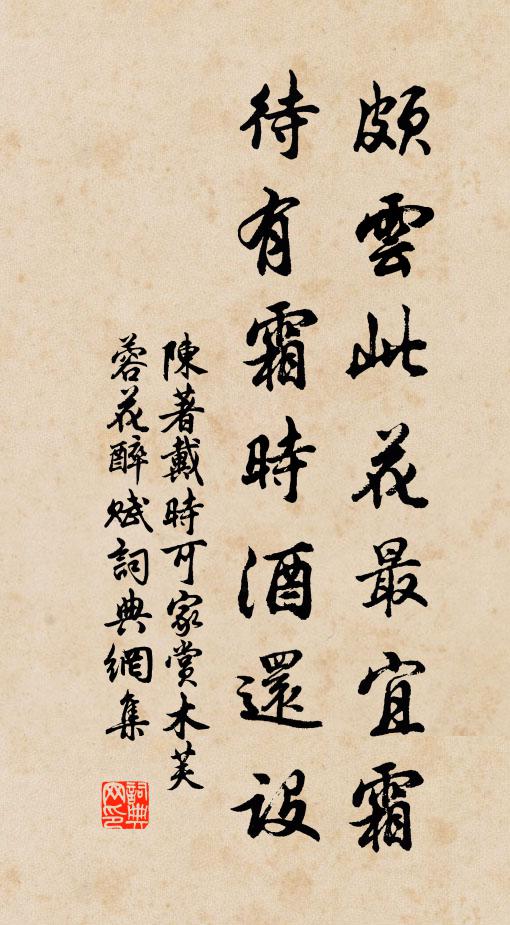 頗雲此花最宜霜
待有霜時酒還設
陳著戴時可家賞木芙
蓉花醉賦詞典網集
詞典
网印